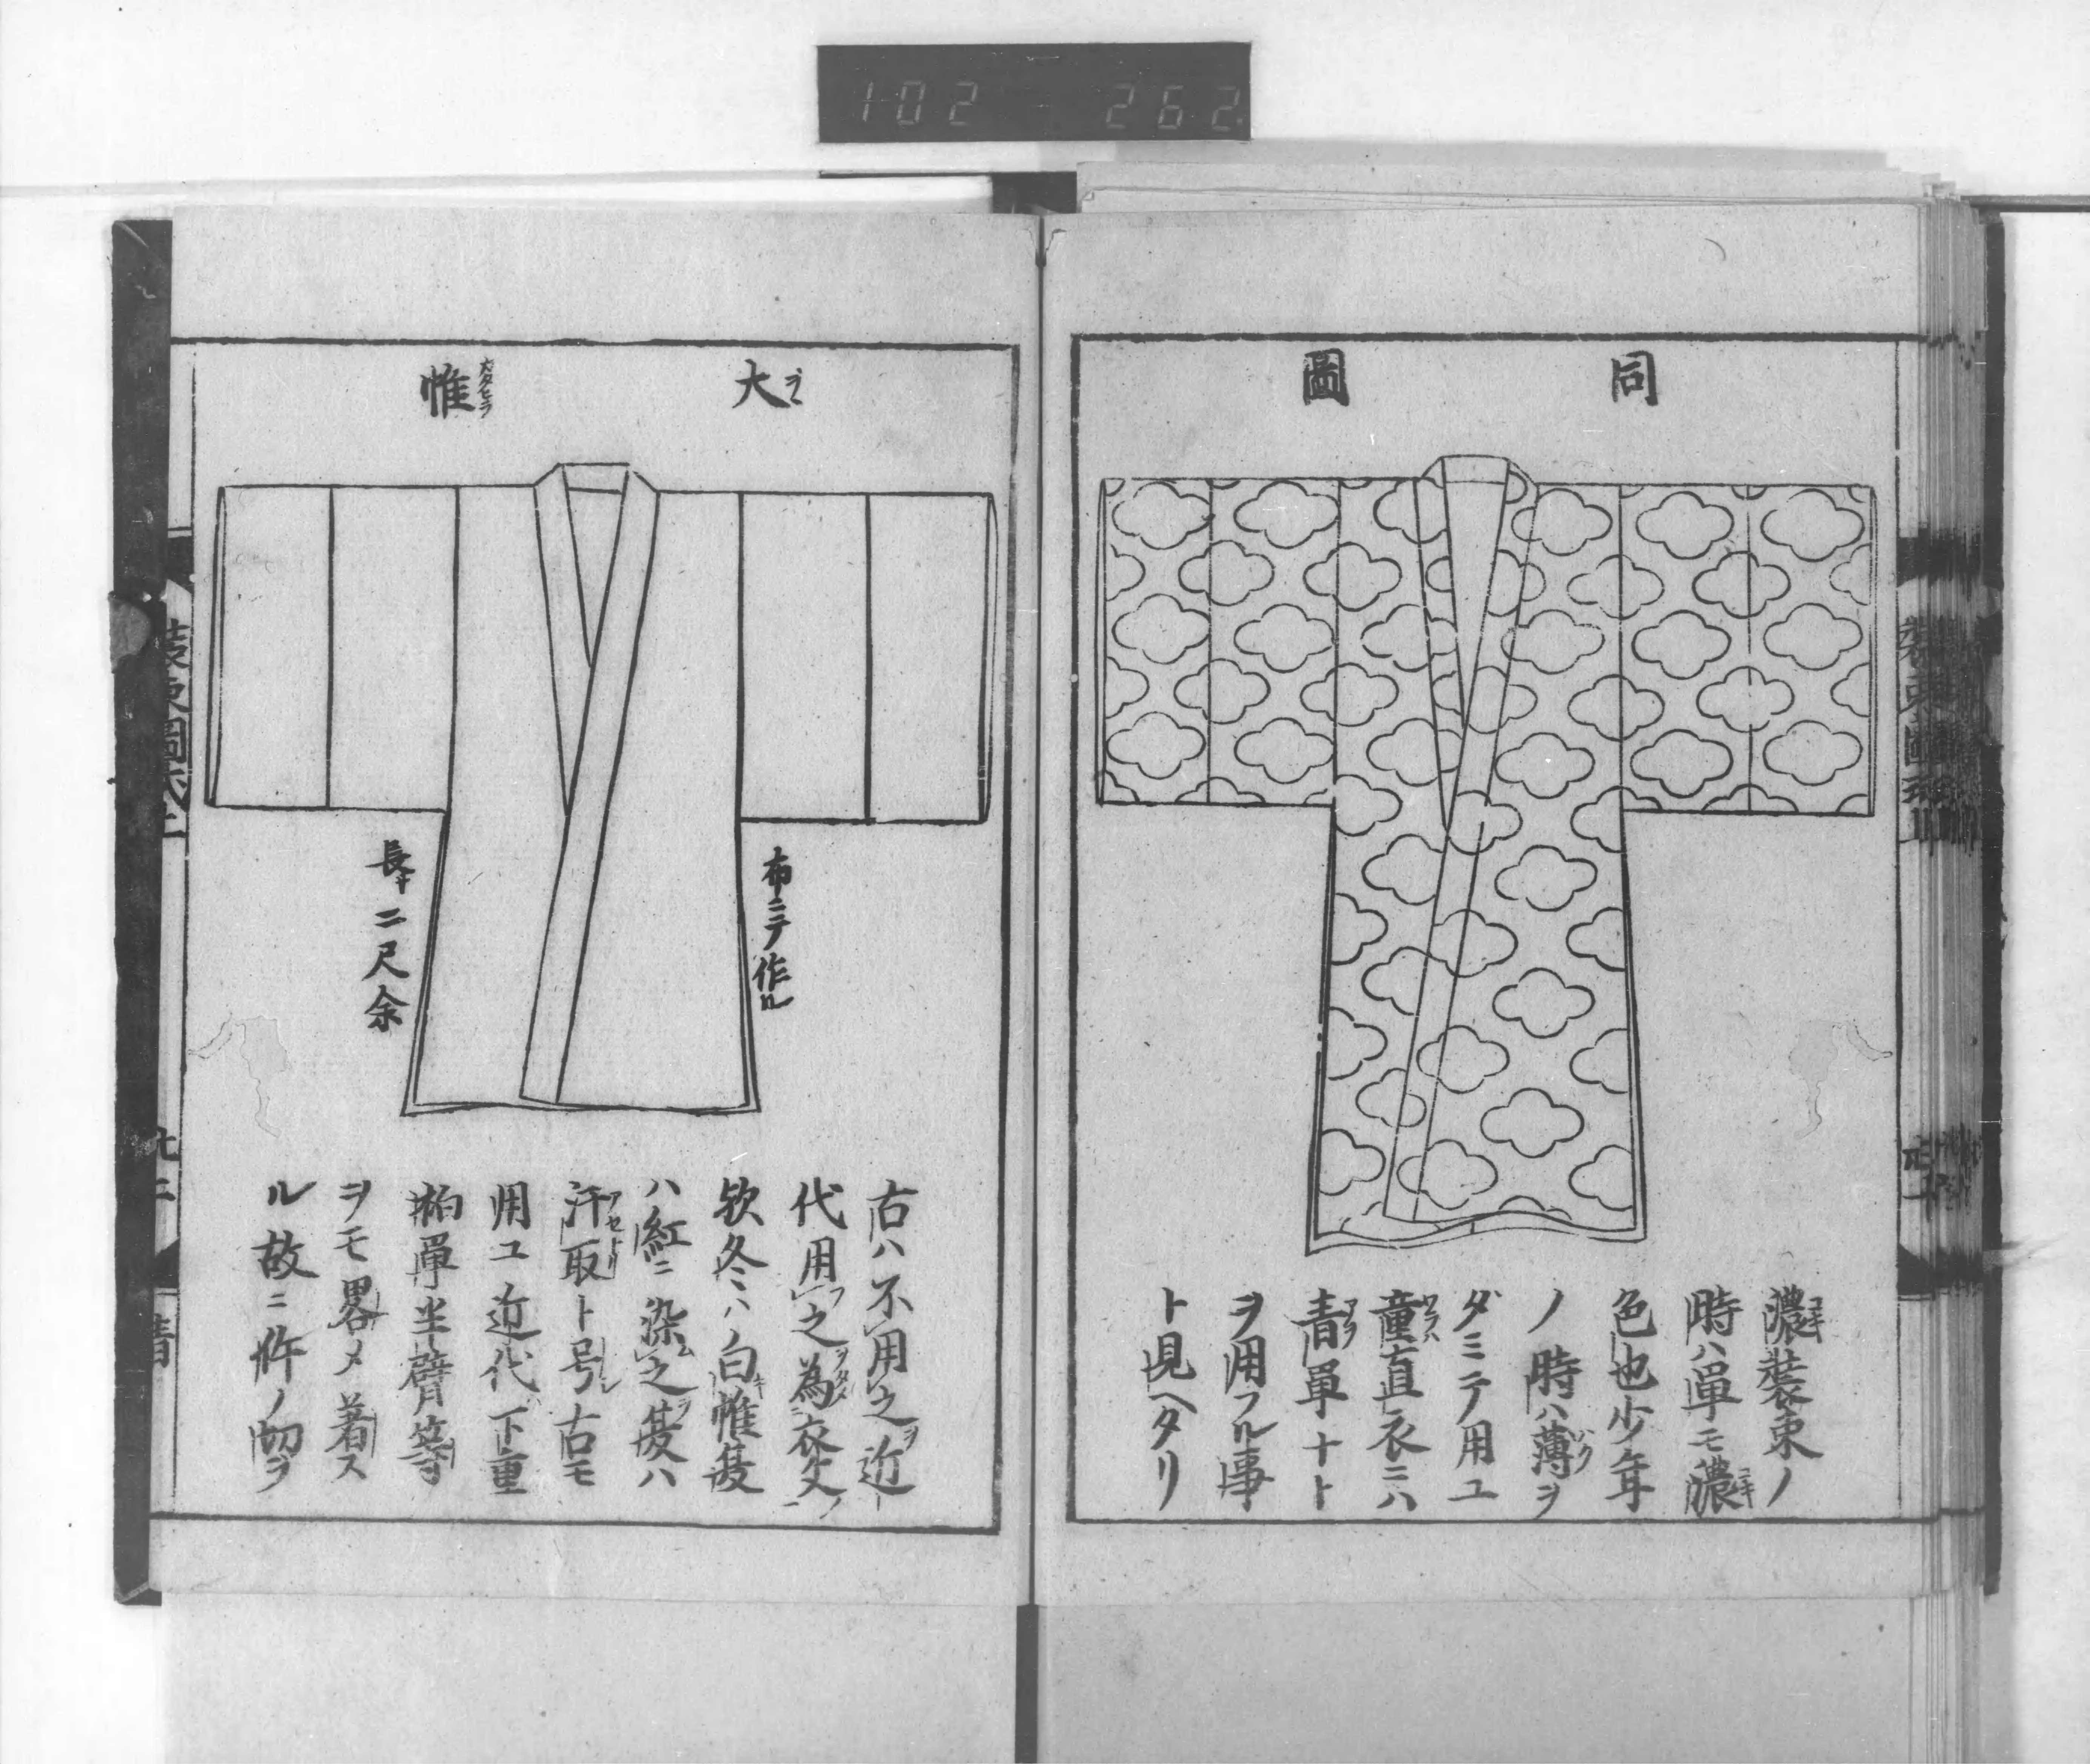 102 262
同圖
濃装束ノ
時ハ單モ濃
色也少年
ノ時ハ薄ヲ
ダミテ用ユ
童直衣ニハ
青單ナト
ヲ用フル事
ト見ヘタリ
大帷
布ニテ作ル
長サ二尺余
古ハ不用之近
代用之為衣文
欤冬ハ白帷夏
ハ紅ニ染之夏ハ
汗取ト号古モ
用ユ近代下重
袙單半臂等
ヲモ畧メ着ス
ル故ニ件ノ切ヲ